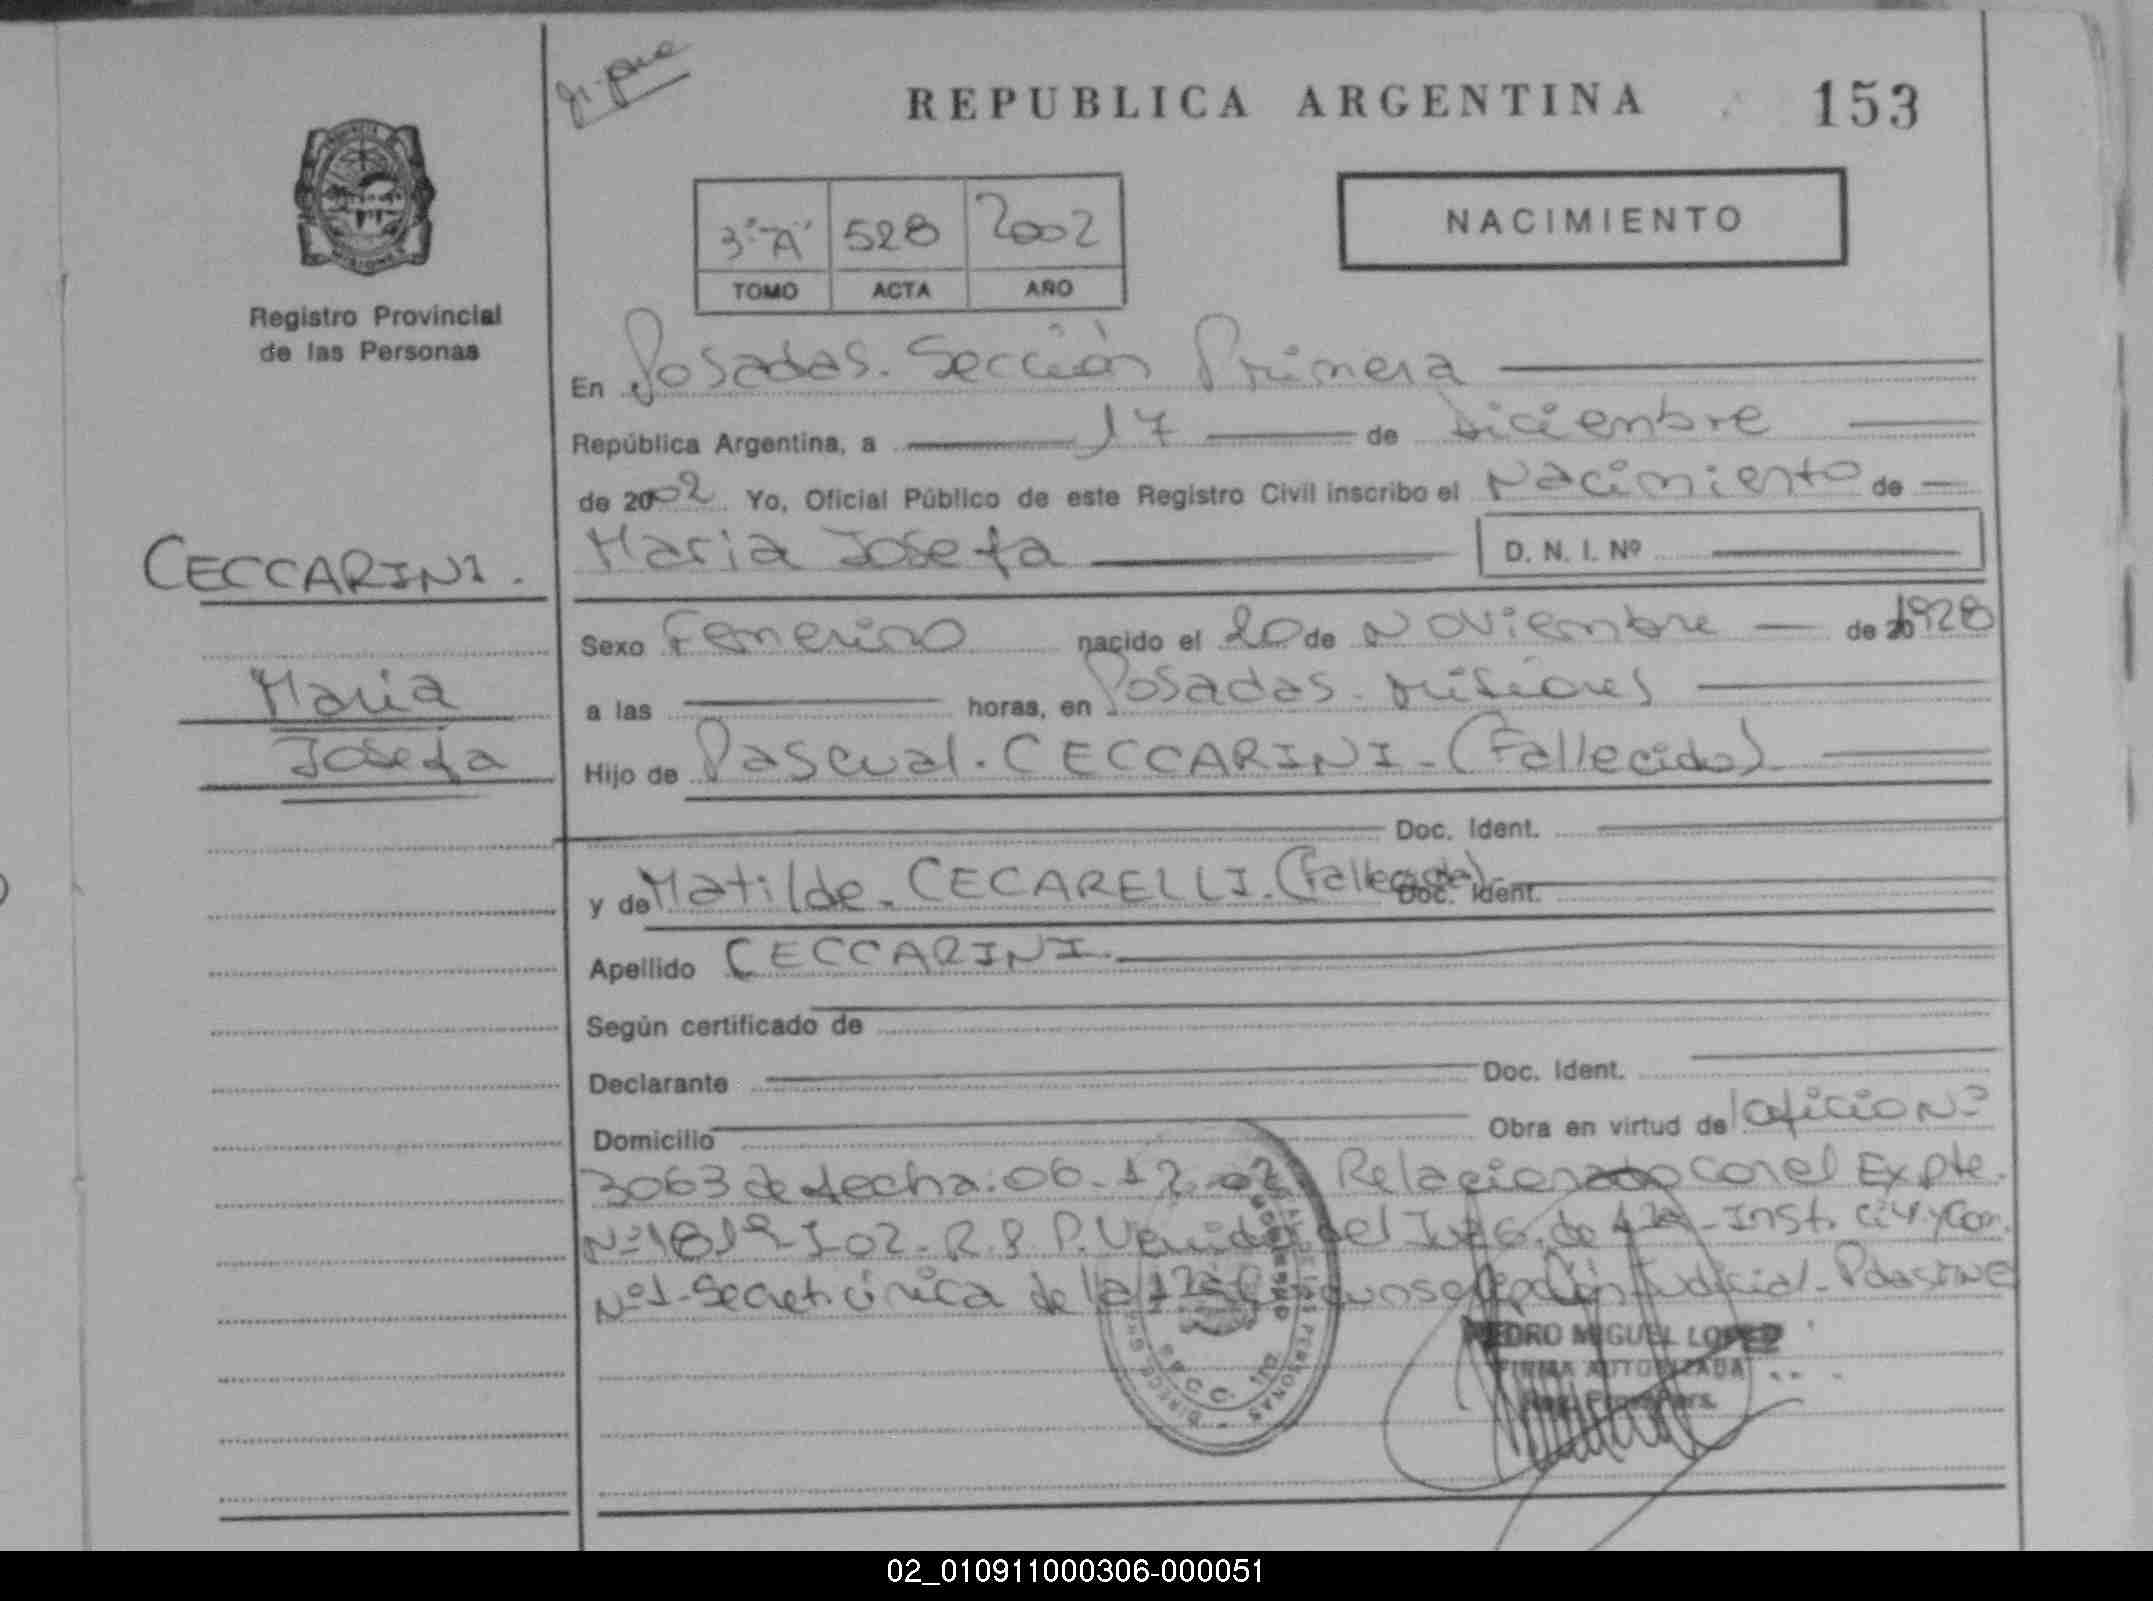 REPUBLICA ARGENTINA 153
NACIMIENTO
3º "A" 528 2002
TOMO ACTA AÑO
Registro Provincial
de las Personas
En Posadas. Sección Primera
República Argentina, a 17 de Diciembre
de 2002 Yo, Oficial Público de este Registro Civil inscribo el Nacimiento de
Maria Josefa D. N. I. Nº
CECCARINI.
Maria
Josefa
Sexo Femenino nacido el 20 de Noviembre de 1928
a las horas, en Posadas. Misiones
Hijo de Pascual. CECCARINI - (Fallecido)
Doc. Ident.
y de Matilde. CECARELLI. (Fallecida) Doc. Ident.
Apellido CECCARINI.
Según certificado de
Declarante Doc. Ident.
Domicilio Obra en virtud de oficio Nº
3063 de fecha: 06.12.02 Relacionado con el Expte.
Del Juzg. de 1ra. Inst. Civ. y Com.
Nº1 - Secret. única de la 1ra Judicial.
PEDRO MIGUEL LOPEZ
FIRMA AUTORIZADA
02_010911000306-000051